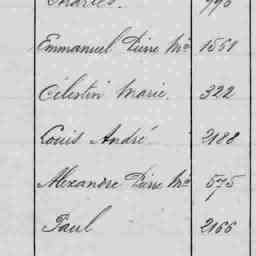 Charles. 990
Emmanuel Pierre Me 1551
Célestin Marie. 322
Louis André 2188
Alexandre Pierre Me 575
Paul 2166